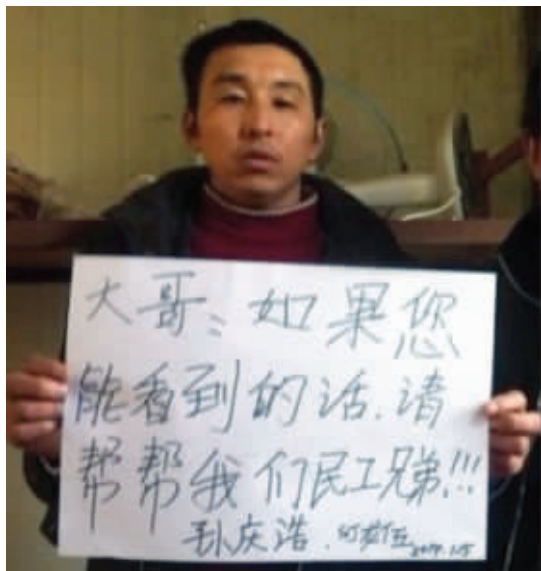 大哥:如果您
能看到的话.请
帮帮我们民工兄弟!!!
孙庆浩.